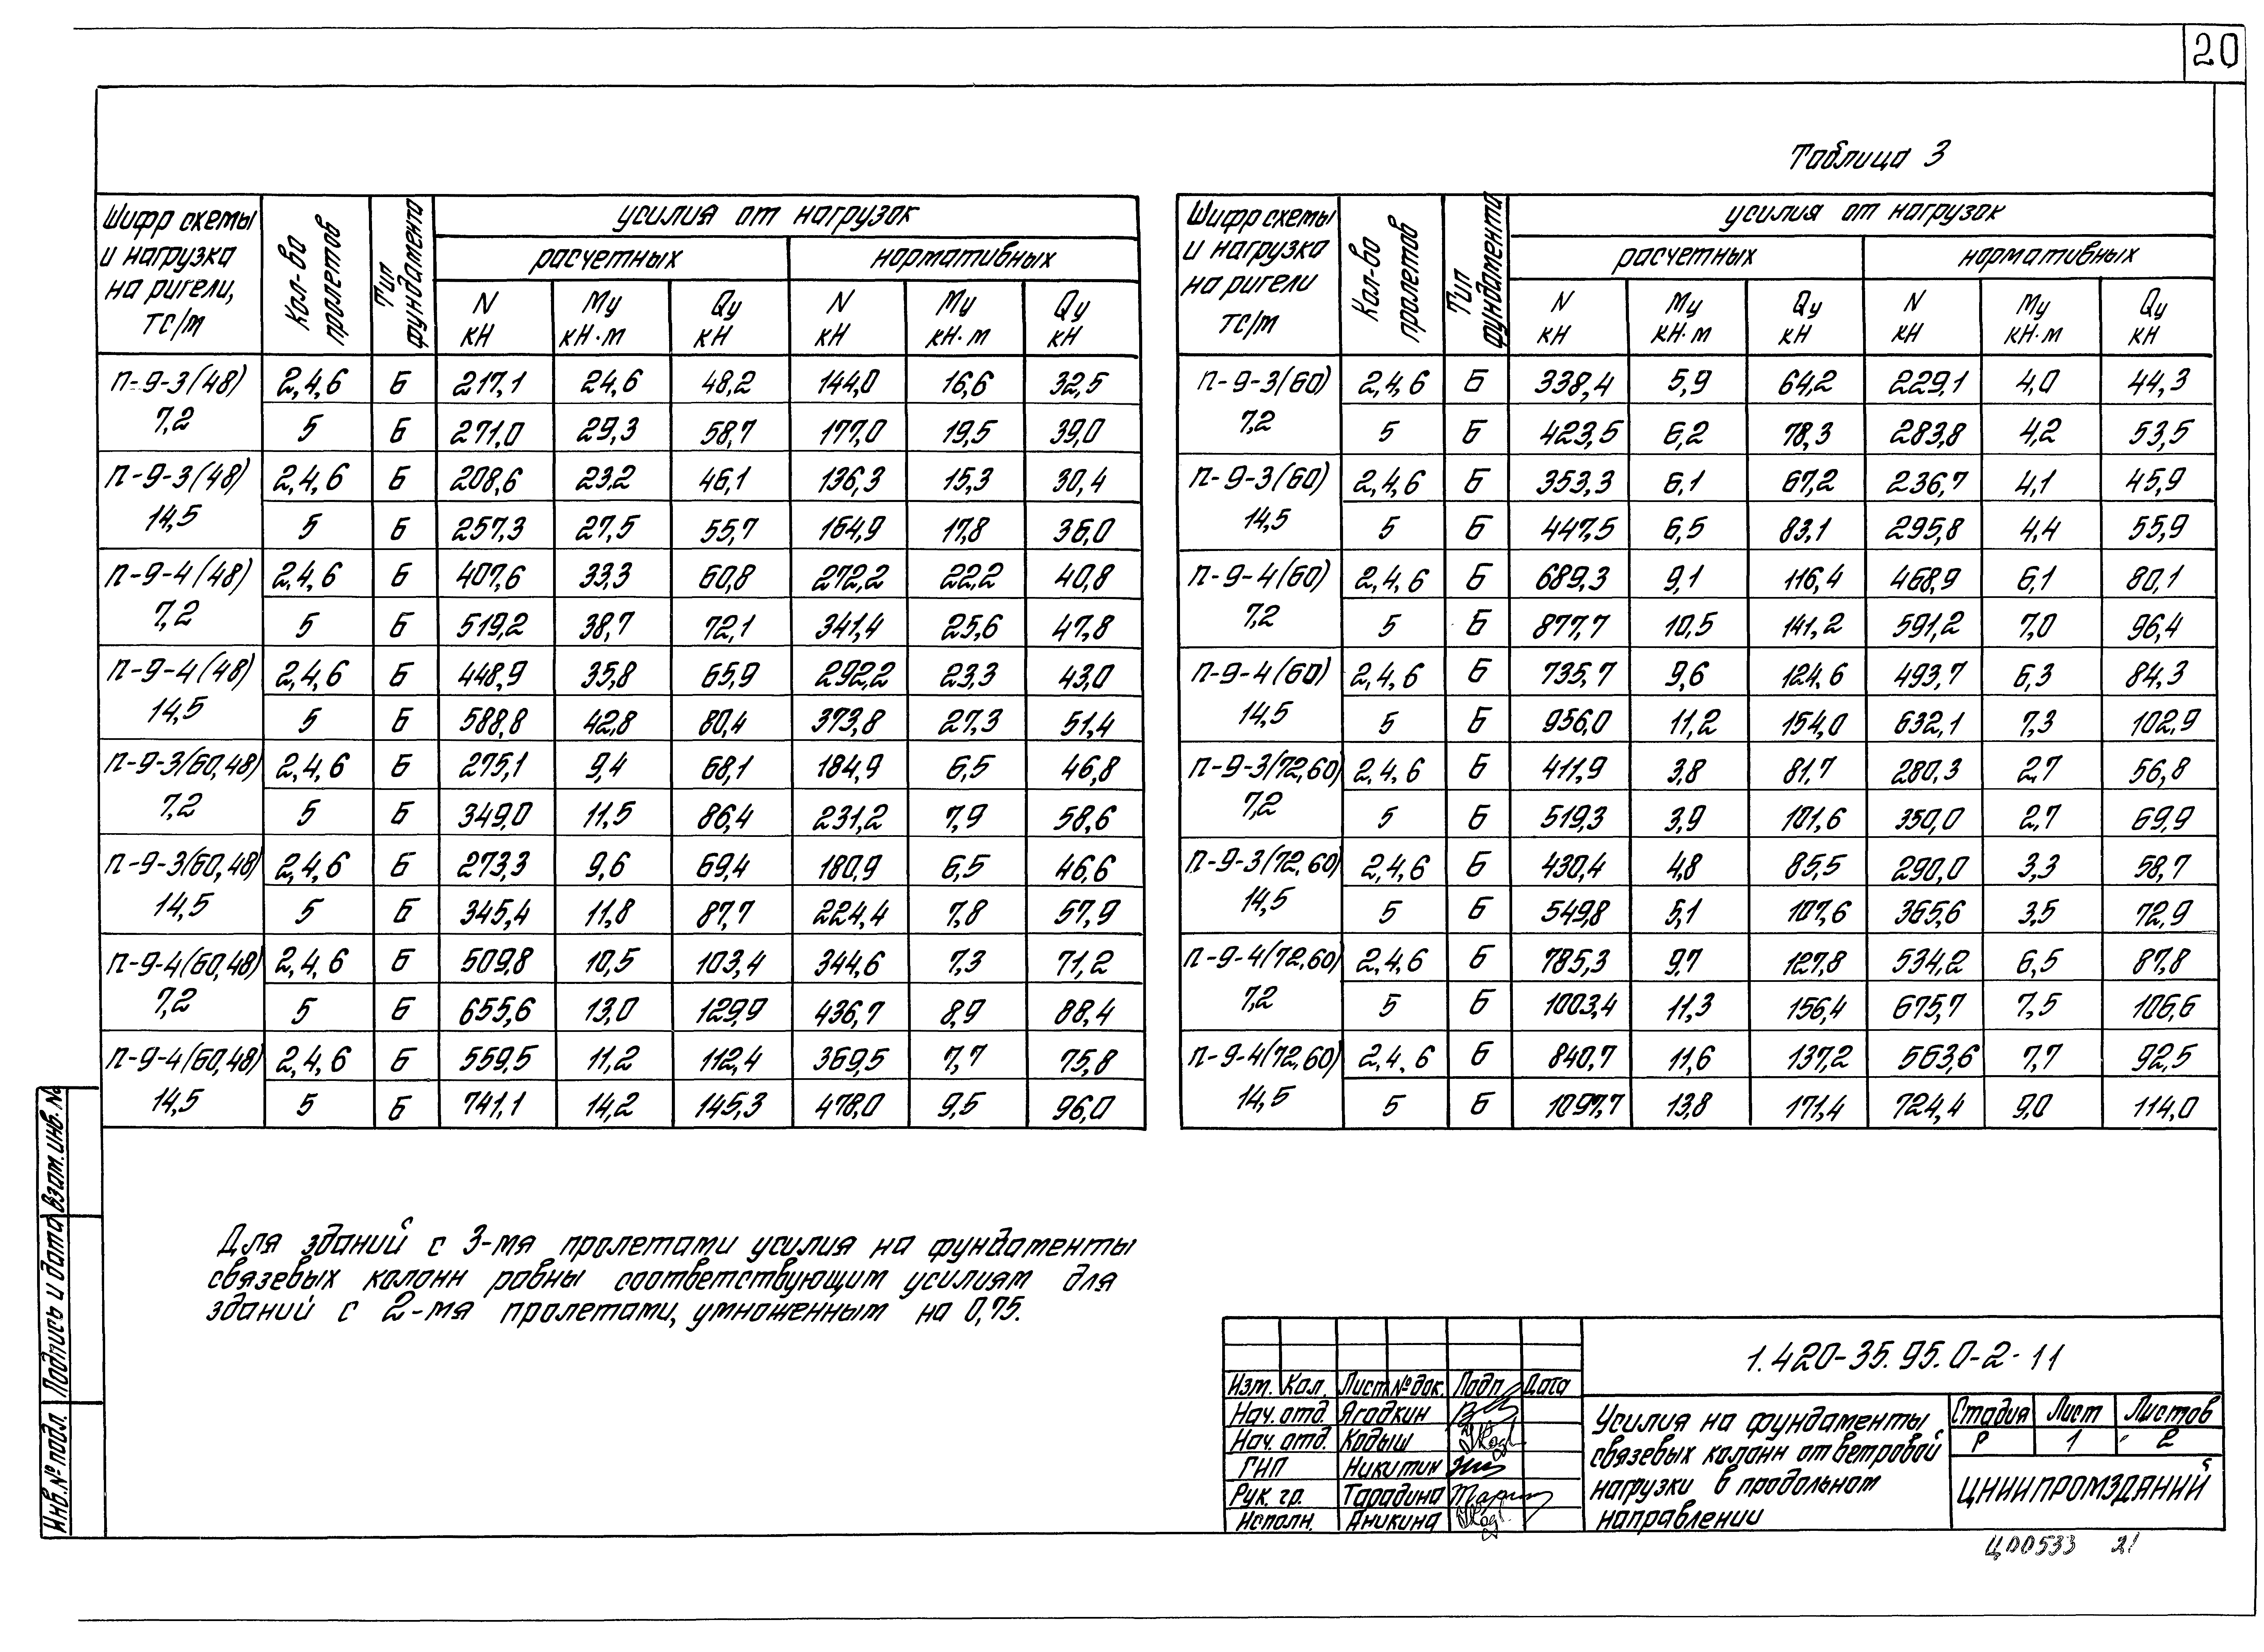 20
Таблица 3
Шифр схемы и нагрузка на ригели, тс/м | Кол-во пролетов | Тип фундамента | усилия от нагрузок
расчетных | нормативных
N кН | Му кН·м | Qу кН | N кН | Му кН·м | Qу кН
п-9-3(48) 2,4,6 Б 217,1 24,6 48,2 144,0 16,6 32,5
7,2 5 Б 271,0 29,3 58,7 177,0 19,5 39,0
п-9-3(48) 2,4,6 Б 208,6 23,2 46,1 136,3 15,3 30,4
14,5 5 Б 257,3 27,5 55,7 164,9 17,8 36,0
п-9-4(48) 2,4,6 Б 407,6 33,3 60,8 272,2 22,2 40,8
7,2 5 Б 519,2 38,7 72,1 341,4 25,6 47,8
п-9-4(48) 2,4,6 Б 448,9 35,8 65,9 292,2 23,3 43,0
14,5 5 Б 588,8 42,8 80,4 373,8 27,3 51,4
п-9-3(60,48) 2,4,6 Б 275,1 9,4 68,1 184,9 6,5 46,8
7,2 5 Б 349,0 11,5 86,4 231,2 7,9 58,6
п-9-3(60,48) 2,4,6 Б 273,3 9,6 69,4 180,9 6,5 46,6
14,5 5 Б 345,4 11,8 87,7 224,4 7,8 57,9
п-9-4(60,48) 2,4,6 Б 509,8 10,5 103,4 344,6 7,3 71,2
7,2 5 Б 655,6 13,0 129,9 436,7 8,9 88,4
п-9-4(60,48) 2,4,6 Б 559,5 11,2 112,4 369,5 7,7 75,8
14,5 5 Б 741,1 14,2 145,3 478,0 9,5 96,0
Шифр схемы и нагрузка на ригели тс/м | Кол-во пролетов | Тип фундамента | усилия от нагрузок
расчетных | нормативных
N кН | Му кН·м | Qу кН | N кН | Му кН·м | Qу кН
п-9-3(60) 2,4,6 Б 338,4 5,9 64,2 229,1 4,0 44,3
7,2 5 Б 423,5 6,2 78,3 283,8 4,2 53,5
п-9-3(60) 2,4,6 Б 353,3 6,1 67,2 236,7 4,1 45,9
14,5 5 Б 447,5 6,5 83,1 295,8 4,4 55,9
п-9-4(60) 2,4,6 Б 689,3 9,1 116,4 468,9 6,1 80,1
7,2 5 Б 877,7 10,5 141,2 591,2 7,0 96,4
п-9-4(60) 2,4,6 Б 735,7 9,6 124,6 493,7 6,3 84,3
14,5 5 Б 956,0 11,2 154,0 632,1 7,3 102,9
п-9-3(72,60) 2,4,6 Б 411,9 3,8 81,7 280,3 2,7 56,8
7,2 5 Б 519,3 3,9 101,6 350,0 2,7 69,9
п-9-3(72,60) 2,4,6 Б 430,4 4,8 85,5 290,0 3,3 58,7
14,5 5 Б 549,8 5,1 107,6 365,6 3,5 72,9
п-9-4(72,60) 2,4,6 Б 785,3 9,7 127,8 534,2 6,5 87,8
7,2 5 Б 1003,4 11,3 156,4 675,7 7,5 106,6
п-9-4(72,60) 2,4,6 Б 840,7 11,6 137,2 563,6 7,7 92,5
14,5 5 Б 1097,7 13,8 171,4 724,4 9,0 114,0
Для зданий с 3-мя пролетами усилия на фундаменты
связевых колонн равны соответствующим усилиям для
зданий с 2-мя пролетами, умноженным на 0,75.
Инв.№ подл. Подпись и дата Взам.инв.№
Изм. Кол. Лист № док. Подп Дата
Нач. отд. Ягодкин
Нач. отд. Кодыш
ГИП Никитин
Рук. гр. Тарадина
Исполн. Аникина
1.420-35.95.0-2-11
Усилия на фундаменты
связевых колонн от ветровой
нагрузки в продольном
направлении
Стадия Лист Листов
Р 1 2
ЦНИИПРОМЗДАНИЙ
Ц00533 21